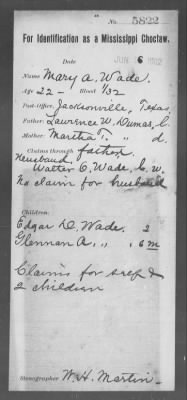 No. 5822
For Identification as a Mississippi Choctaw.
Date JUN 6 1902
Name Mary A. Wade.
Age 22 - Blood 1/32
Post-Office, Jacksonville, Texas
Father: Lawrence W. Dumas,
Mother: Martha T. " d.
Claims through father.
Husband
Walter C. Wade, C. W.
No claim for husband
Children:
Edgar D. Wade. 2
Glennan A. " 6 m
Claims for self &
2 children
Stenographer W. H. Martin